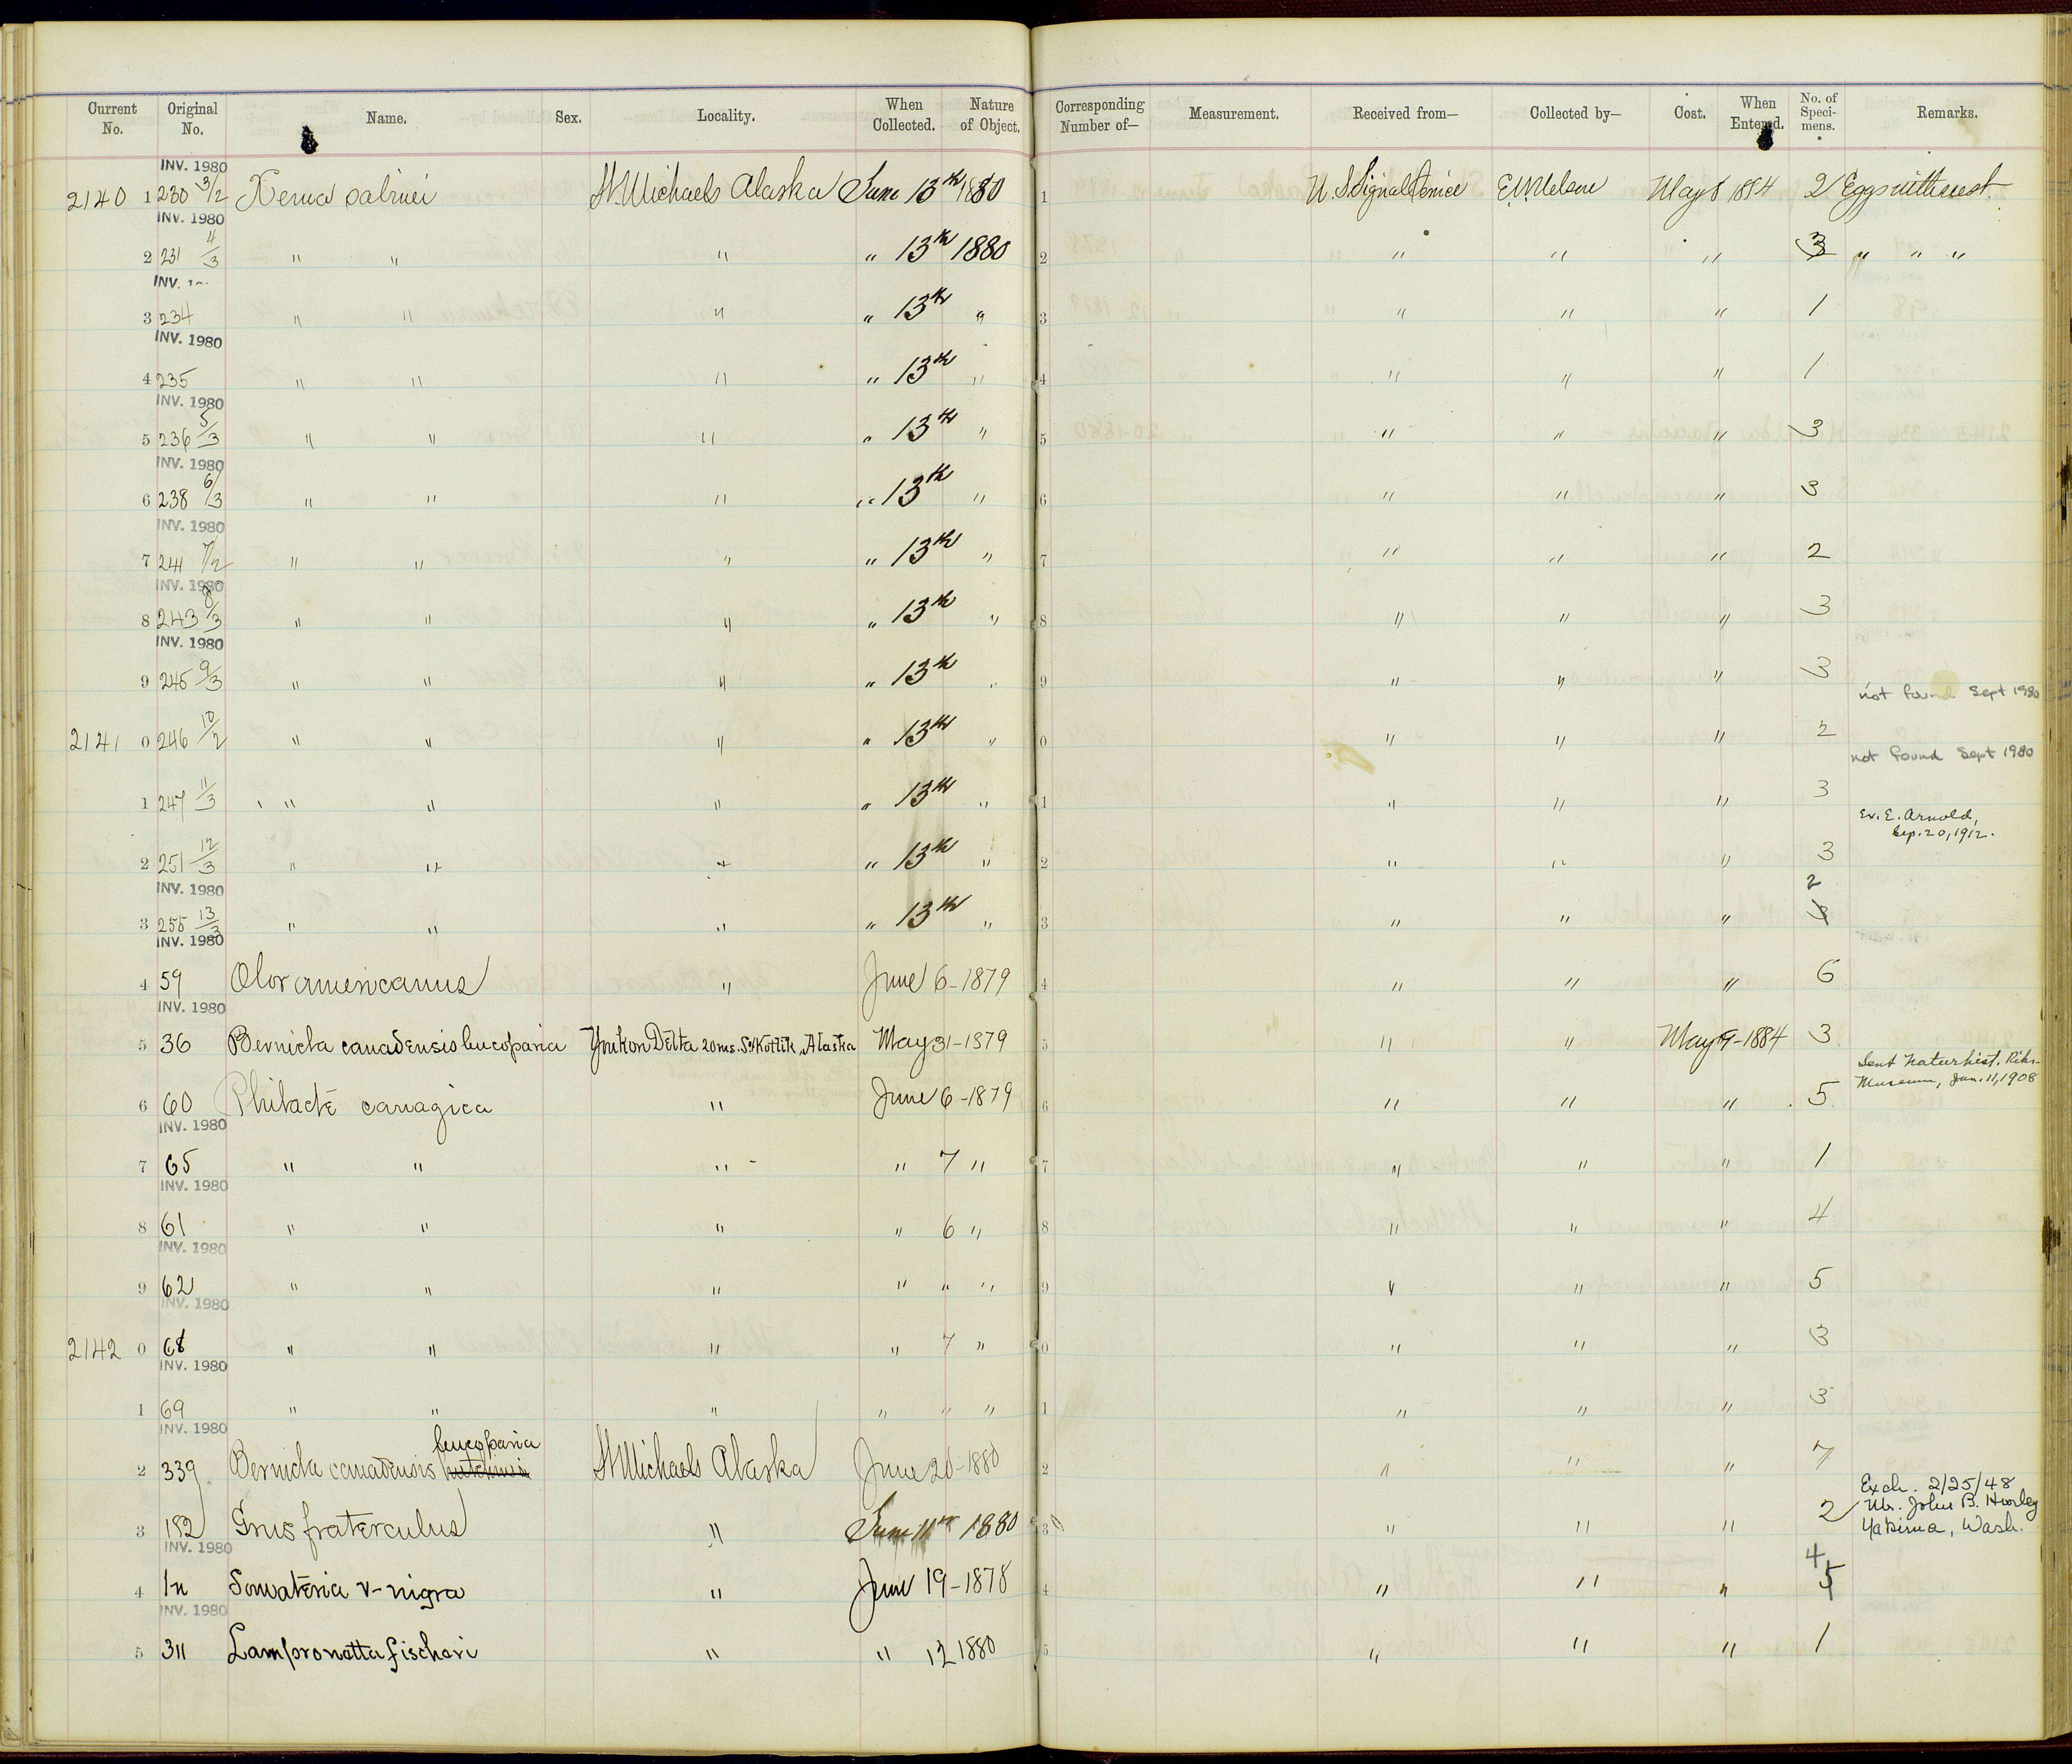 Current No. Original No. Name. Sex. Locality. When Collected. Nature of Object. Corresponding Number of— Measurement. Received from— Collected by— Cost. When Entered. No. of Specimens. Remarks.
INV. 1980
2140 1 230 3/2 Xema sabinei St. Michaels Alaska June 13th 1880 1 U.S. Signal Service E.W. Nelson May 8 1884 2 Eggs with nest.
INV. 1980
2 231 4/3 " " " " 13th 1880 2 " " " 3 " " "
INV.
3 234 " " " " 13th " 3 " " " 1
INV. 1980
4 235 " " " " 13th " 4 " " " 1
INV. 1980
5 236 5/3 " " " " 13th " 5 " " " 3
INV. 1980
6 238 6/3 " " " " 13th " 6 " " " 3
INV. 1980
7 241 7/2 " " " " 13th " 7 " " " 2
INV. 1980
8 243 8/3 " " " " 13th " 8 " " " 3
INV. 1980
9 245 9/3 " " " " 13th " 9 " " " 3
not found Sept 1980
2141 0 246 10/2 " " " " 13th " 0 " " " 2
not found Sept 1980
1 247 11/3 " " " " 13th " 1 " " " 3
Ex. E. Arnold,
Sep. 20, 1912.
2 251 12/3 " " " " 13th " 2 " " " 3
INV. 1980
2
3 255 13/3 " " " " 13th " 3 " " " 3
INV. 1980
4 59 Olor americanus " June 6-1879 4 " " " 6
INV. 1980
5 36 Bernicla canadensis leucoparia Yukon Delta 20 ms. S. Kotlik, Alaska May 31-1879 5 " " May 9-1884 3
Sent Naturhist. Riks-
Museum, Jan. 11, 1908
6 60 Philacte canagica " June 6-1879 6 " " " 5
INV. 1980
7 65 " " " " 7 " 7 " " " 1
INV. 1980
8 61 " " " " 6 " 8 " " " 4
INV. 1980
9 62 " " " " " " 9 " " " 5
INV. 1980
2142 0 68 " " " " 7 " 0 " " " 3
INV. 1980
1 69 " " " " " " 1 " " " 3
INV. 1980
leucoparia
2 339 Bernicla canadensis hutchinsi St Michaels Alaska June 20-1880 2 " " " 7
Exch. 2/25/48
Mr. John B. Hurley
Yakima, Wash.
3 182 Grus fraterculus " June 11th 1880 3 " " " 2
INV. 1980
4
4 Somateria v-nigra " June 19-1878 4 " " " 5
INV. 1980
5 311 Lampronetta fischeri " " 12 1880 5 " " " 1